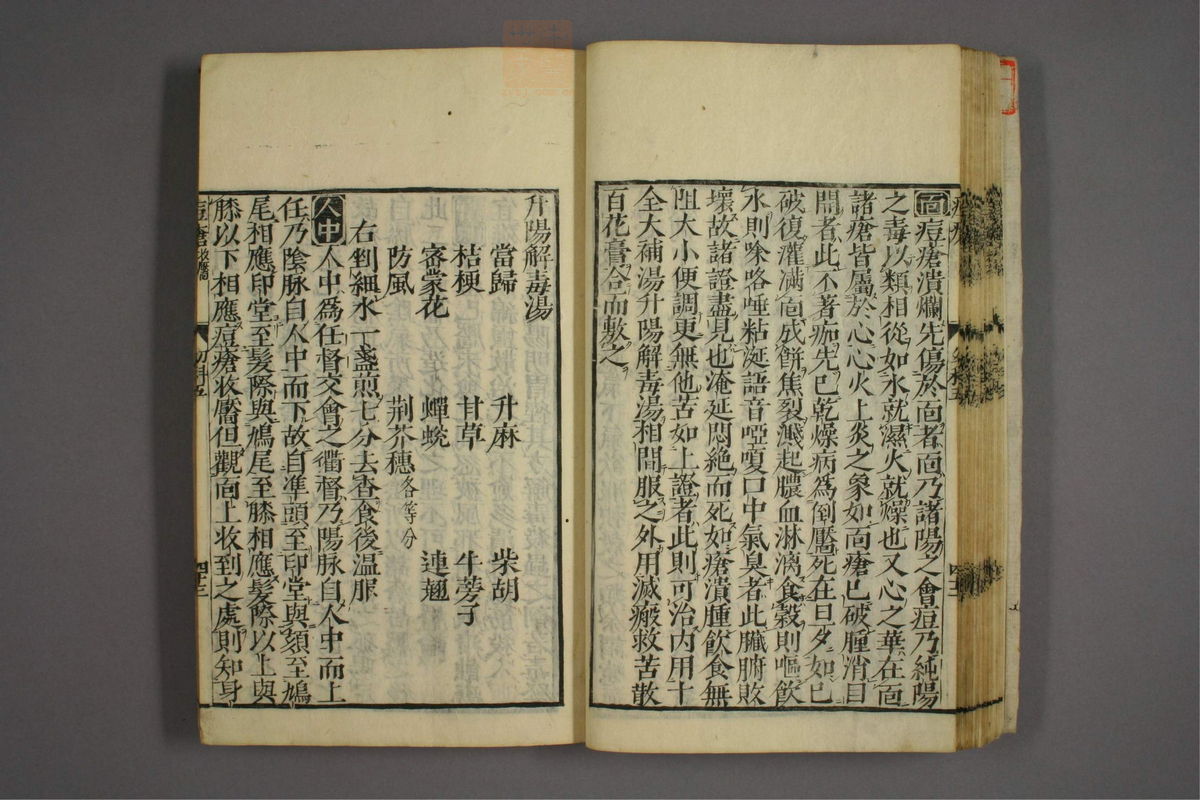 面痘瘡潰爛先傷於面者面乃諸陽之會痘乃純陽
之毒以類相從如水就濕火就燥也又心之華在面
諸瘡皆屬於心心火上炎之象如面瘡已破腫消目
開者此不著痂先已乾燥病為倒靨死在旦夕如已
破復灌滿面成餅焦裂濺起膿血淋漓食穀則嘔飲
水則哚咯唾粘涎語音啞嗄口中氣臭者此臟腑敗
壞故諸證盡見也淹延悶絶而死如瘡潰腫飲食無
阻大小便調更無他苦如上證者此則可治内用十
全大補湯升陽解毒湯相間服之外用滅瘢救苦散
百花膏合而敷之
升陽解毒湯
當歸 升麻 柴胡
桔梗 甘草 牛蒡子
密蒙花 蟬蛻 連翹
防風 荆芥穗各等分
右剉細水一盞煎七分去柤食後温服
人中人中為任督交會之衢督乃陽脉自人中而上
任乃陰脉自人中而下故自準頭至印堂與頦至鳩
尾相應印堂至髮際與鳩尾至膝相應髮際以上與
膝以下相應痘瘡收靨但觀面上收到之處則知身
痘瘡收靨
幼科五
四十三